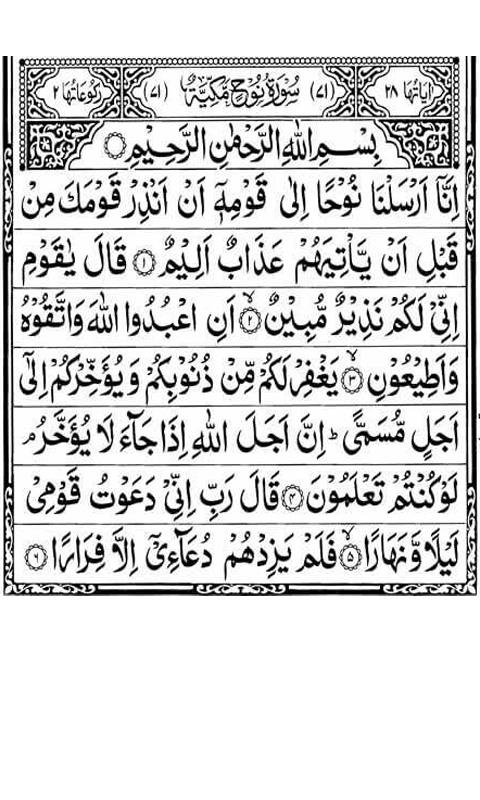 اٰیاتها ٢٨ (٧١) سُوْرَةُ نُوْحٍ مَّكِّيَّةٌ (٧١) رکوعاتها ٢
بِسْمِ اللّٰهِ الرَّحْمٰنِ الرَّحِيْمِ
اِنَّاۤ اَرْسَلْنَا نُوْحًا اِلٰى قَوْمِهٖۤ اَنْ اَنْذِرْ قَوْمَكَ مِنْ
قَبْلِ اَنْ يَّاْتِيَهُمْ عَذَابٌ اَلِيْمٌ ۝١ قَالَ يٰقَوْمِ
اِنِّيْ لَكُمْ نَذِيْرٌ مُّبِيْنٌ ۝٢ۙ اَنِ اعْبُدُوا اللّٰهَ وَاتَّقُوْهُ
وَاَطِيْعُوْنِ ۝٣ۙ يَغْفِرْ لَكُمْ مِّنْ ذُنُوْبِكُمْ وَيُؤَخِّرْكُمْ اِلٰۤى
اَجَلٍ مُّسَمًّى ؕ اِنَّ اَجَلَ اللّٰهِ اِذَا جَآءَ لَا يُؤَخَّرُ ۘ
لَوْ كُنْتُمْ تَعْلَمُوْنَ ۝٤ قَالَ رَبِّ اِنِّيْ دَعَوْتُ قَوْمِيْ
لَيْلًا وَّنَهَارًا ۝٥ۙ فَلَمْ يَزِدْهُمْ دُعَآءِيْۤ اِلَّا فِرَارًا ۝٦